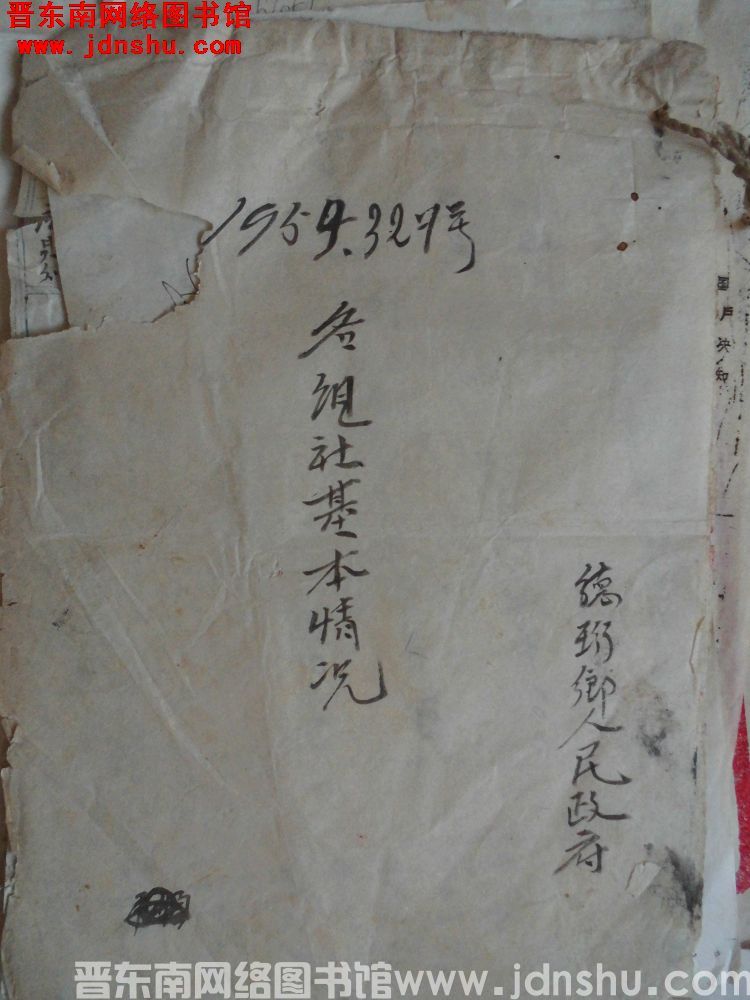 晋东南网络图书馆
www.jdnshu.com
1954.327号
各组社基本情况
鄉人民政府
晋东南网络图书馆www.jdnshu.com